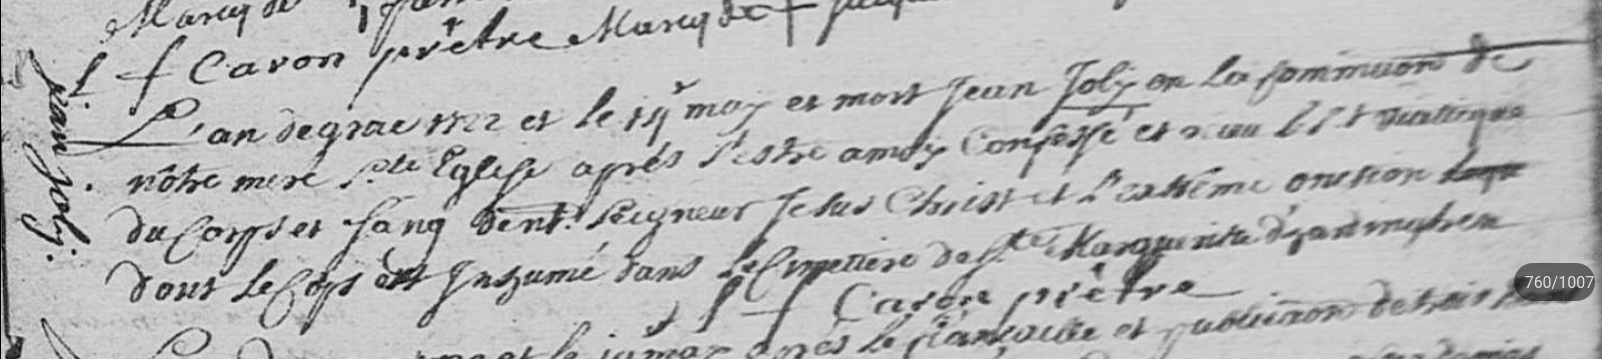 Caron prêtre Marcq de
jean Joly.
L'an de grace 1722 et le may et mort Jean Joly en La Communion de
nôtre mere Ste Eglise aprés s'estre amoy Confessé et recu Le St viatique
du Corps et sang de nt. seigneur Jesus Christ et L'extreme onction
dont le Corps est Inhumé dans Le Cimetiere de Ste Marguerite
Caron prêtre
et le may aprés Le et publication de trois
760/1007